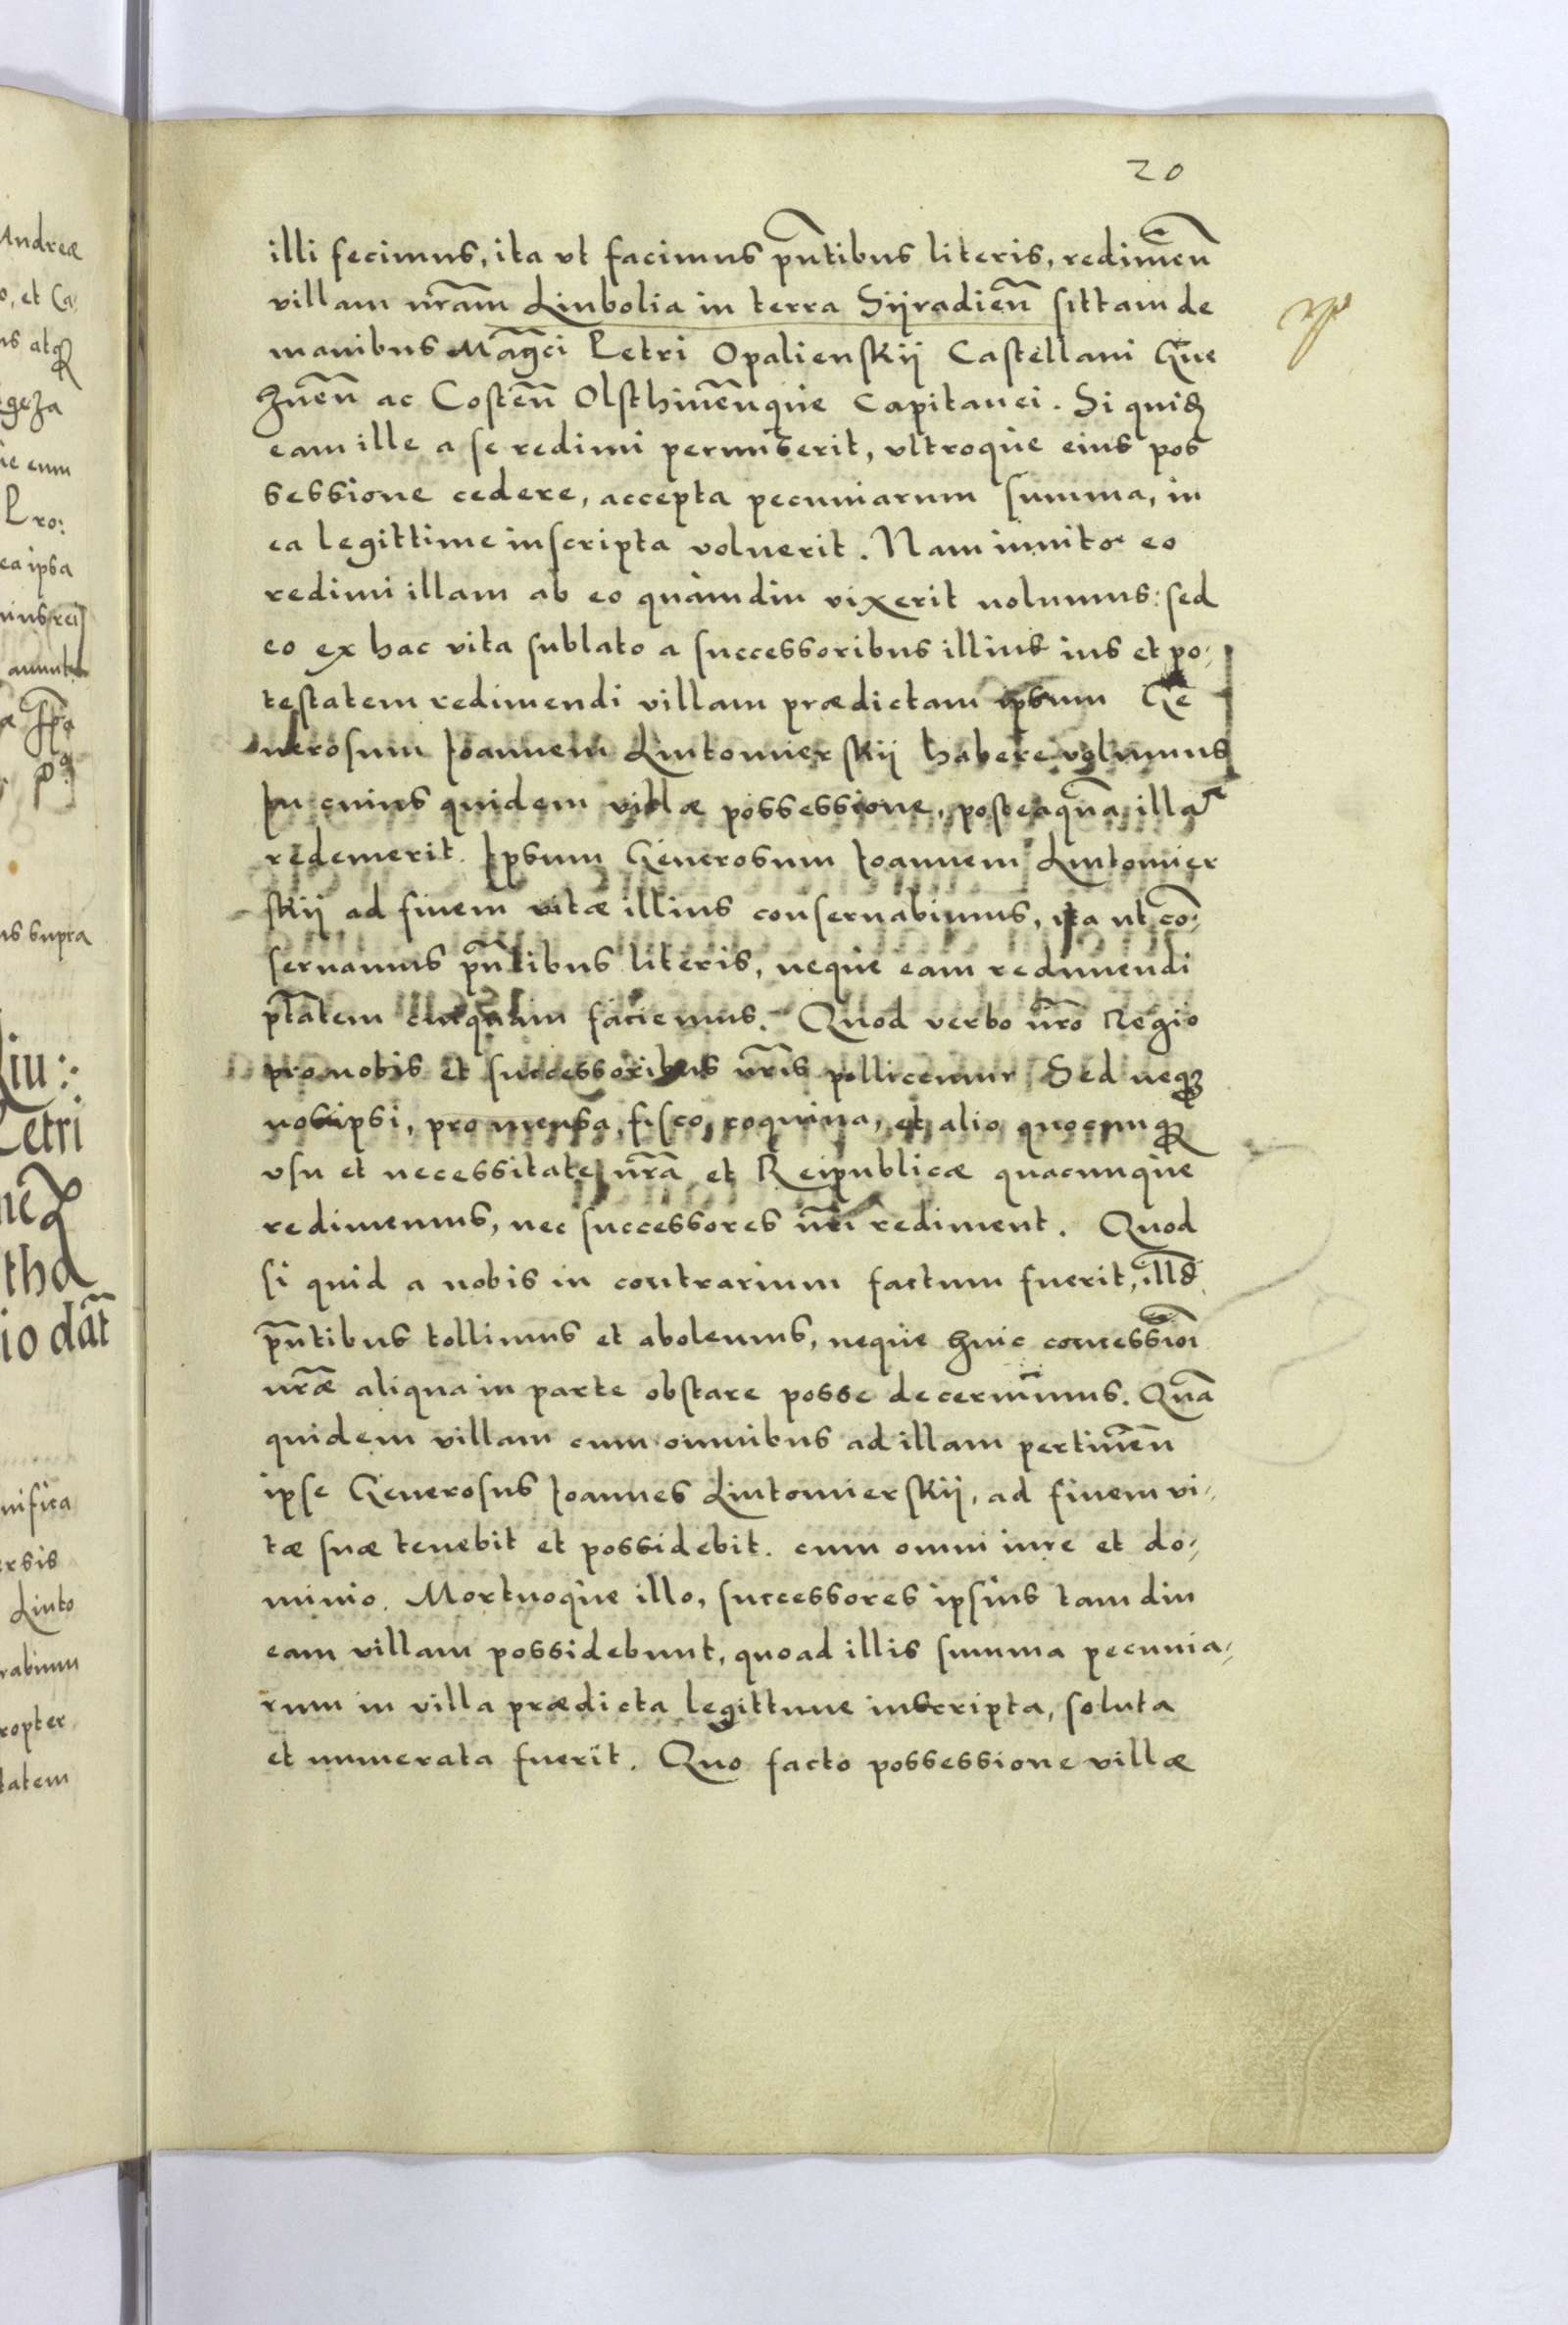 20
illi fecimus, ita vt facimus pñtibus literis, redimeñ
villam nrãm Linbolia in terra Siiradieñ sittam de
manibus Magci Petri Opalienskij Castellani Gne
zneñ ac Costeñ Olsthineñque Capitanei. Si quid
eam ille a se redimi permiserit, vltroque eius pos
sessione cedere, accepta pecuniarum summa, in
ea legittime inscripta voluerit. Nam inuito eo
redimi illam ab eo quamdiu vixerit nolumus: sed
eo ex hac vita sublato a successoribus illius ius et po-
testatem redimendi villam prædictam ipsum Ge
nerosum Joannem Lutomierskij habere volumus
In cuius quidem villæ possessione, posteaquã illã
redemerit. Ipsum Generosum Joannem Lutomier
skij ad finem vitæ illius conseruabimus, ita ut cõ-
seruamus pñtibus literis, neque eam redimendi
ptãtem cuiquam faciemus. Quod verbo nrõ Regio
pro nobis et successoribus nrĩs pollicemur. Sed neqꝫ
nos ipsi, pro mensa, fisco, coquina, et alio quocunqꝫ
vsu et necessitate nrã et Reipublicæ quacunque
redimemus, nec successores nrĩ rediment. Quod
si quid a nobis in contrarium factum fuerit, illd
pñtibus tollimus et abolemus, neque huic concessiõi
nræ̃ aliqua in parte obstare posse decernimus. Quã
quidem villam cum omnibus ad illam pertineñ
ipse Generosus Joannes Lintomierskij, ad finem vi-
tæ suæ tenebit et possidebit. cum omni iure et do-
minio. Mortuoque illo, successores ipsius tam diu
eam villam possidebunt, quoad illis summa pecunia-
rum in villa prædicta legittime inscripta, soluta
et numerata fuerit. Quo facto possessione villæ